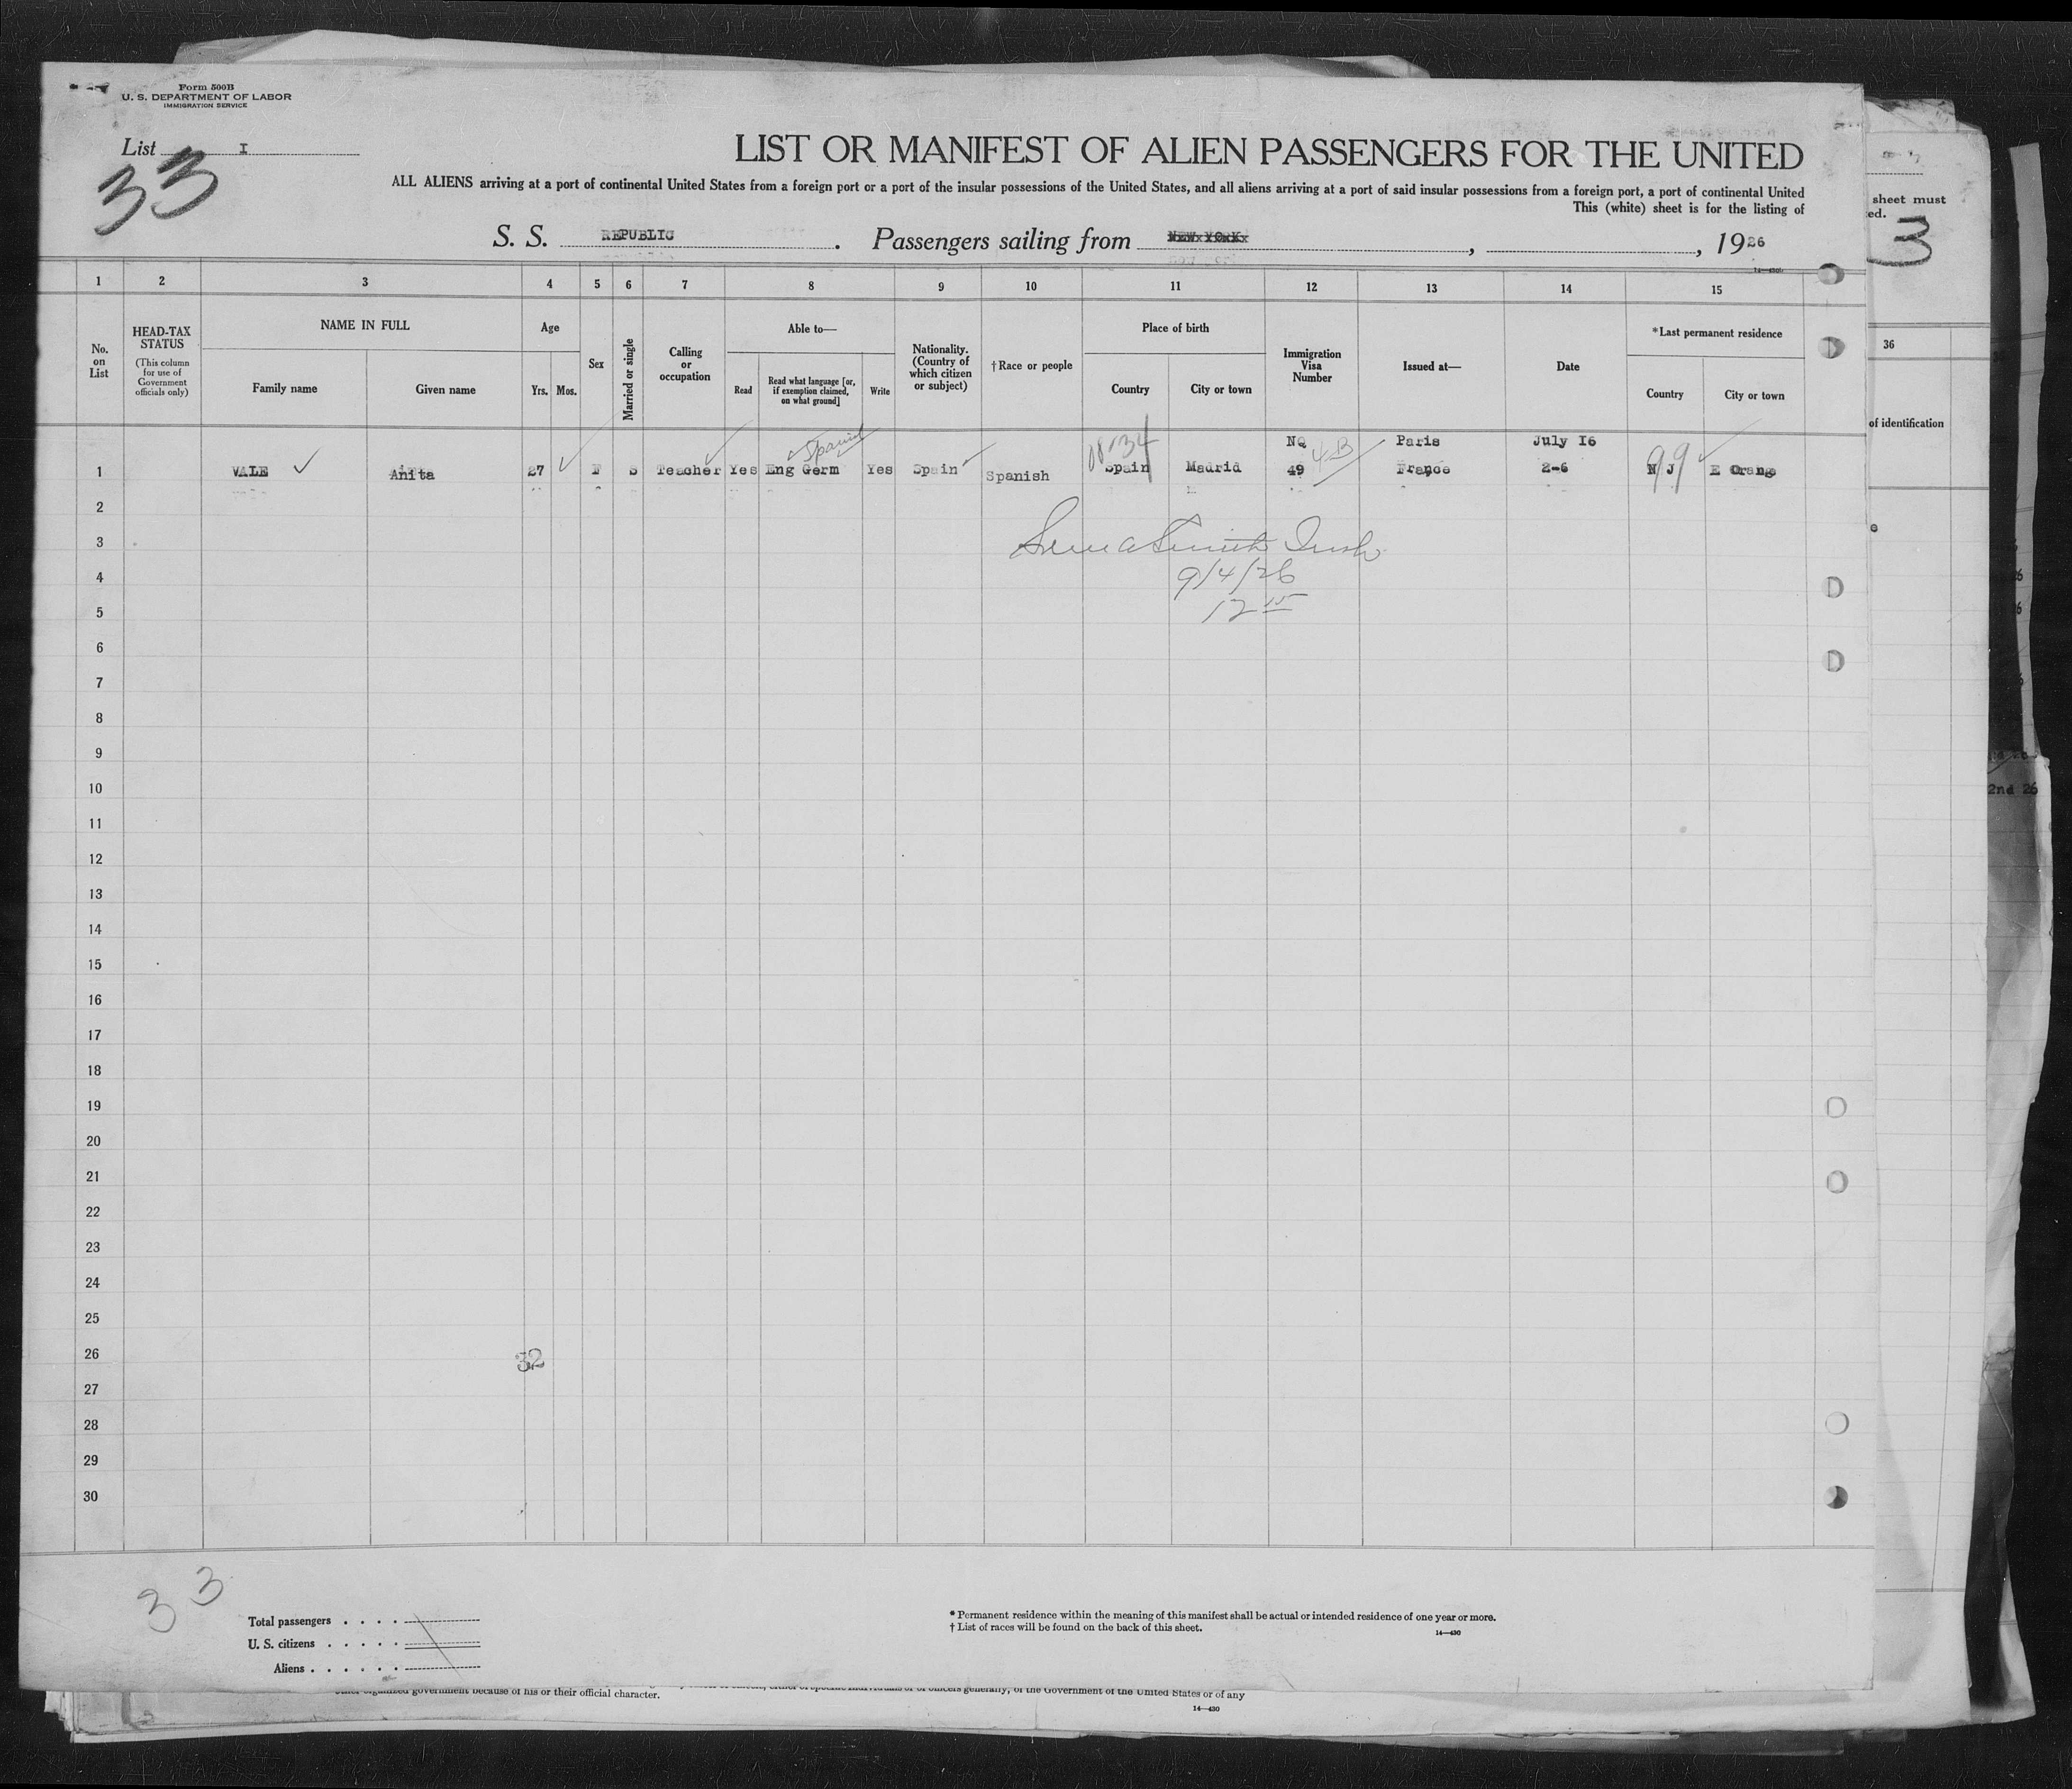 Form 500B
U. S. DEPARTMENT OF LABOR
IMMIGRATION SERVICE
List I
33
LIST OR MANIFEST OF ALIEN PASSENGERS FOR THE UNITED
ALL ALIENS arriving at a port of continental United States from a foreign port or a port of the insular possessions of the United States, and all aliens arriving at a port of said insular possessions from a foreign port, a port of continental United
This (white) sheet is for the listing of
S. S. REPUBLIC. Passengers sailing from NEW YORK, , 1926
sheet must
3
1 2 3 4 5 6 7 8 9 10 11 12 13 14 15
36
No. on List
HEAD-TAX STATUS
(This column for use of Government officials only)
NAME IN FULL
Family name
Given name
Age
Yrs. Mos.
Sex
Married or single
Calling or occupation
Able to—
Read
Read what language [or, if exemption claimed, on what ground]
Write
Nationality. (Country of which citizen or subject)
†Race or people
Place of birth
Country
City or town
Immigration Visa Number
Issued at—
Date
*Last permanent residence
Country
City or town
of identification
Spanish
No 4B Paris July 16
1 VALE Anita 27 F S Teacher Yes Eng Germ Yes Spain Spanish Spain Madrid 49 France 2-6 N J E Orang
99
2
3
9/4/26
4
12 15
5
6
7
8
9
10
2nd 26
11
12
13
14
15
16
17
18
19
20
21
22
23
24
25
26
32
27
28
29
30
33
Total passengers
U. S. citizens
Aliens
* Permanent residence within the meaning of this manifest shall be actual or intended residence of one year or more.
† List of races will be found on the back of this sheet.
14—430
organized government because of his or their official character.
of the Government of the United States or of any
14—430